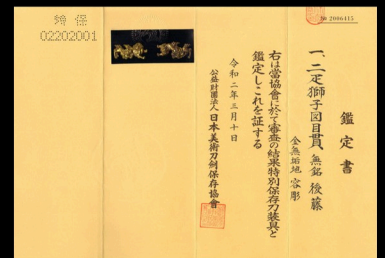 № 2006415
鑑定書
一、二疋獅子図目貫、無銘 後藤
金無垢地 容彫
右は當協會に於て審査の結果特別保存刀装具と
鑑定しこれを証する
令和二年三月十日
公益財團法人 日本美術刀劍保存協會
特保
02202001